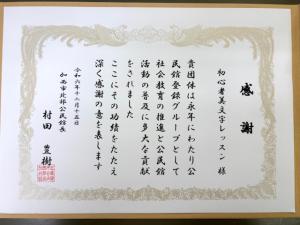 感謝
初心者美文字レッスン 様
貴団体は永年にわたり公
民館登録グループとして
社会教育の推進と公民館
活動の普及に多大な貢献
をされました
ここにその功績をたたえ
深く感謝の意を表します
令和六年十二月十五日
加西市北部公民館長
村田 豊樹